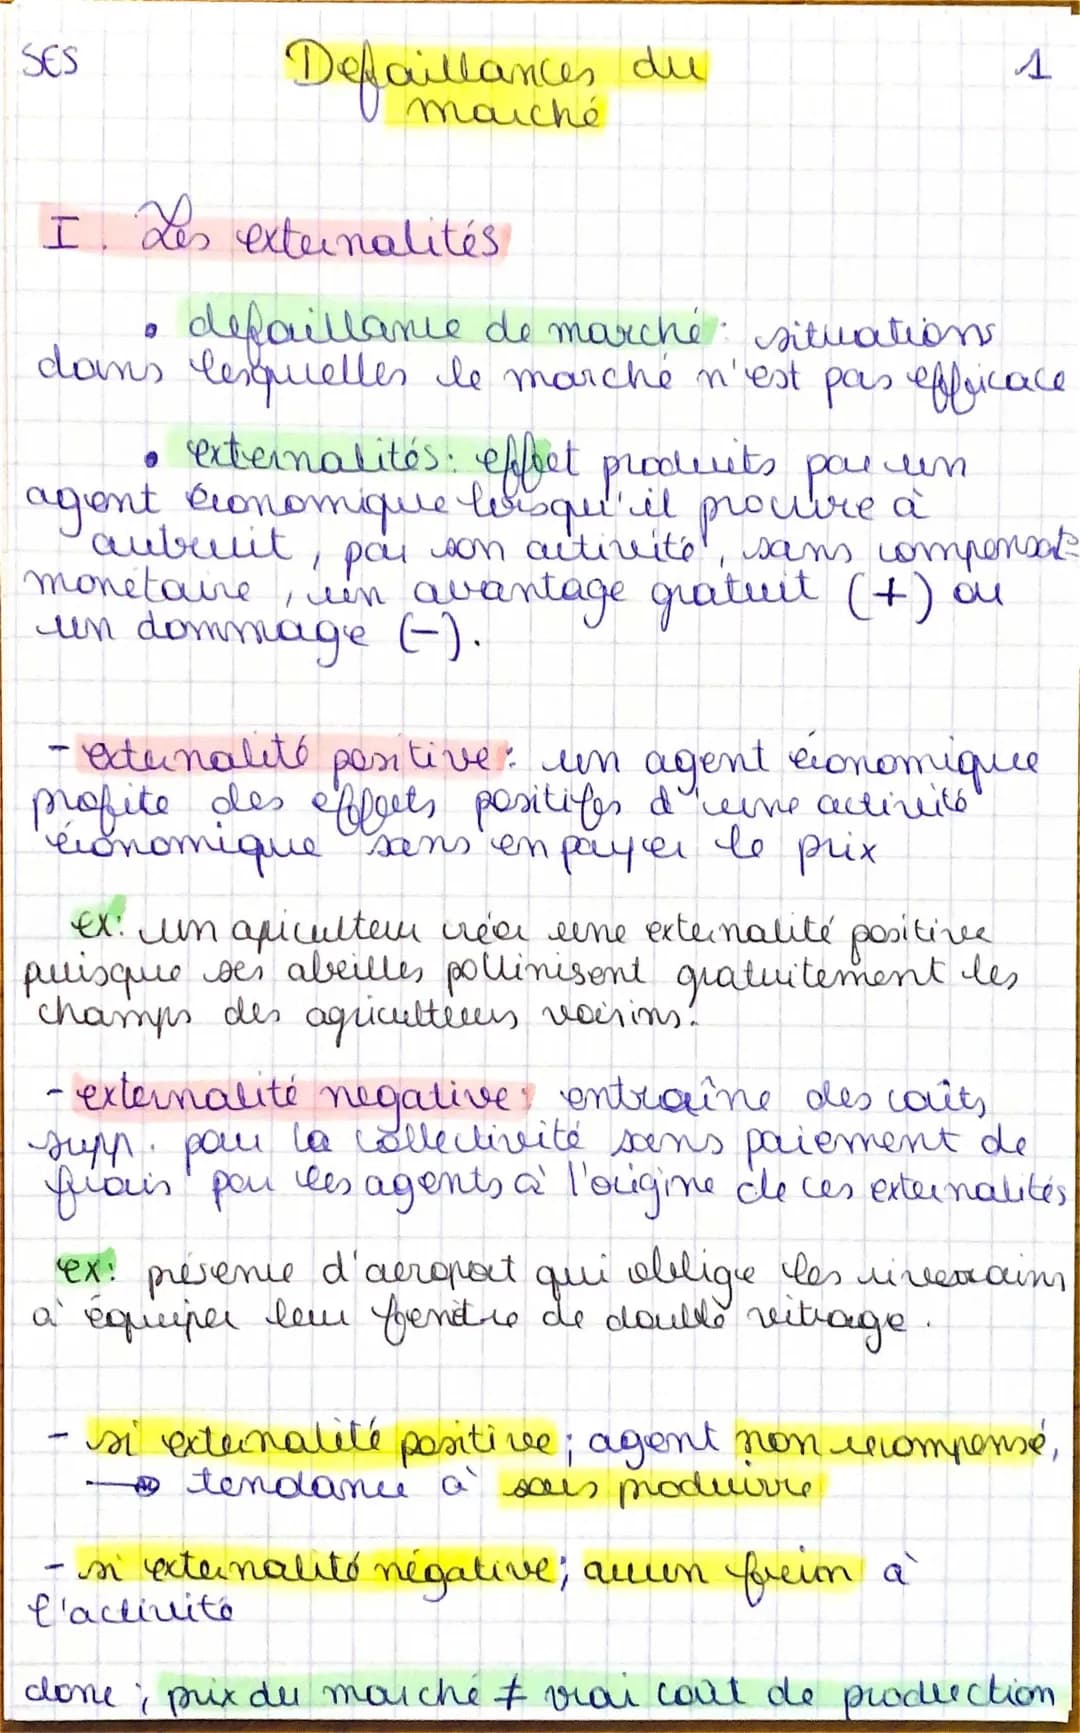 SES
1
Defaillances du
marché
I. Les externalités
• defaillance de marché : situations
dans lesquelles le marché n'est pas efficace
• externalités : effet produits par un
agent économique lorsqu'il procure à
autruit, par son activité, sans compensat°
monétaire, un avantage gratuit (+) ou
un dommage (-).
- externalité positive : un agent économique
profite des effets positifs d'une activité
économique sans en payer le prix
ex: un apiculteur créer une externalité positive
puisque ses abeilles pollinisent gratuitement les
champs des agriculteurs voisins.
- externalité negative : entraîne des coûts
supp. pour la collectivité sans paiement de
frais par les agents à l'origine de ces externalités
ex: présence d'aeroport qui oblige les riverains
à équiper leur fenêtre de double vitrage.
- si externalité positive ; agent non recompensé,
→ tendance à sous produire
- si externalité négative ; aucun frein à
l'activité
donc ; prix du marché ≠ vrai coût de production